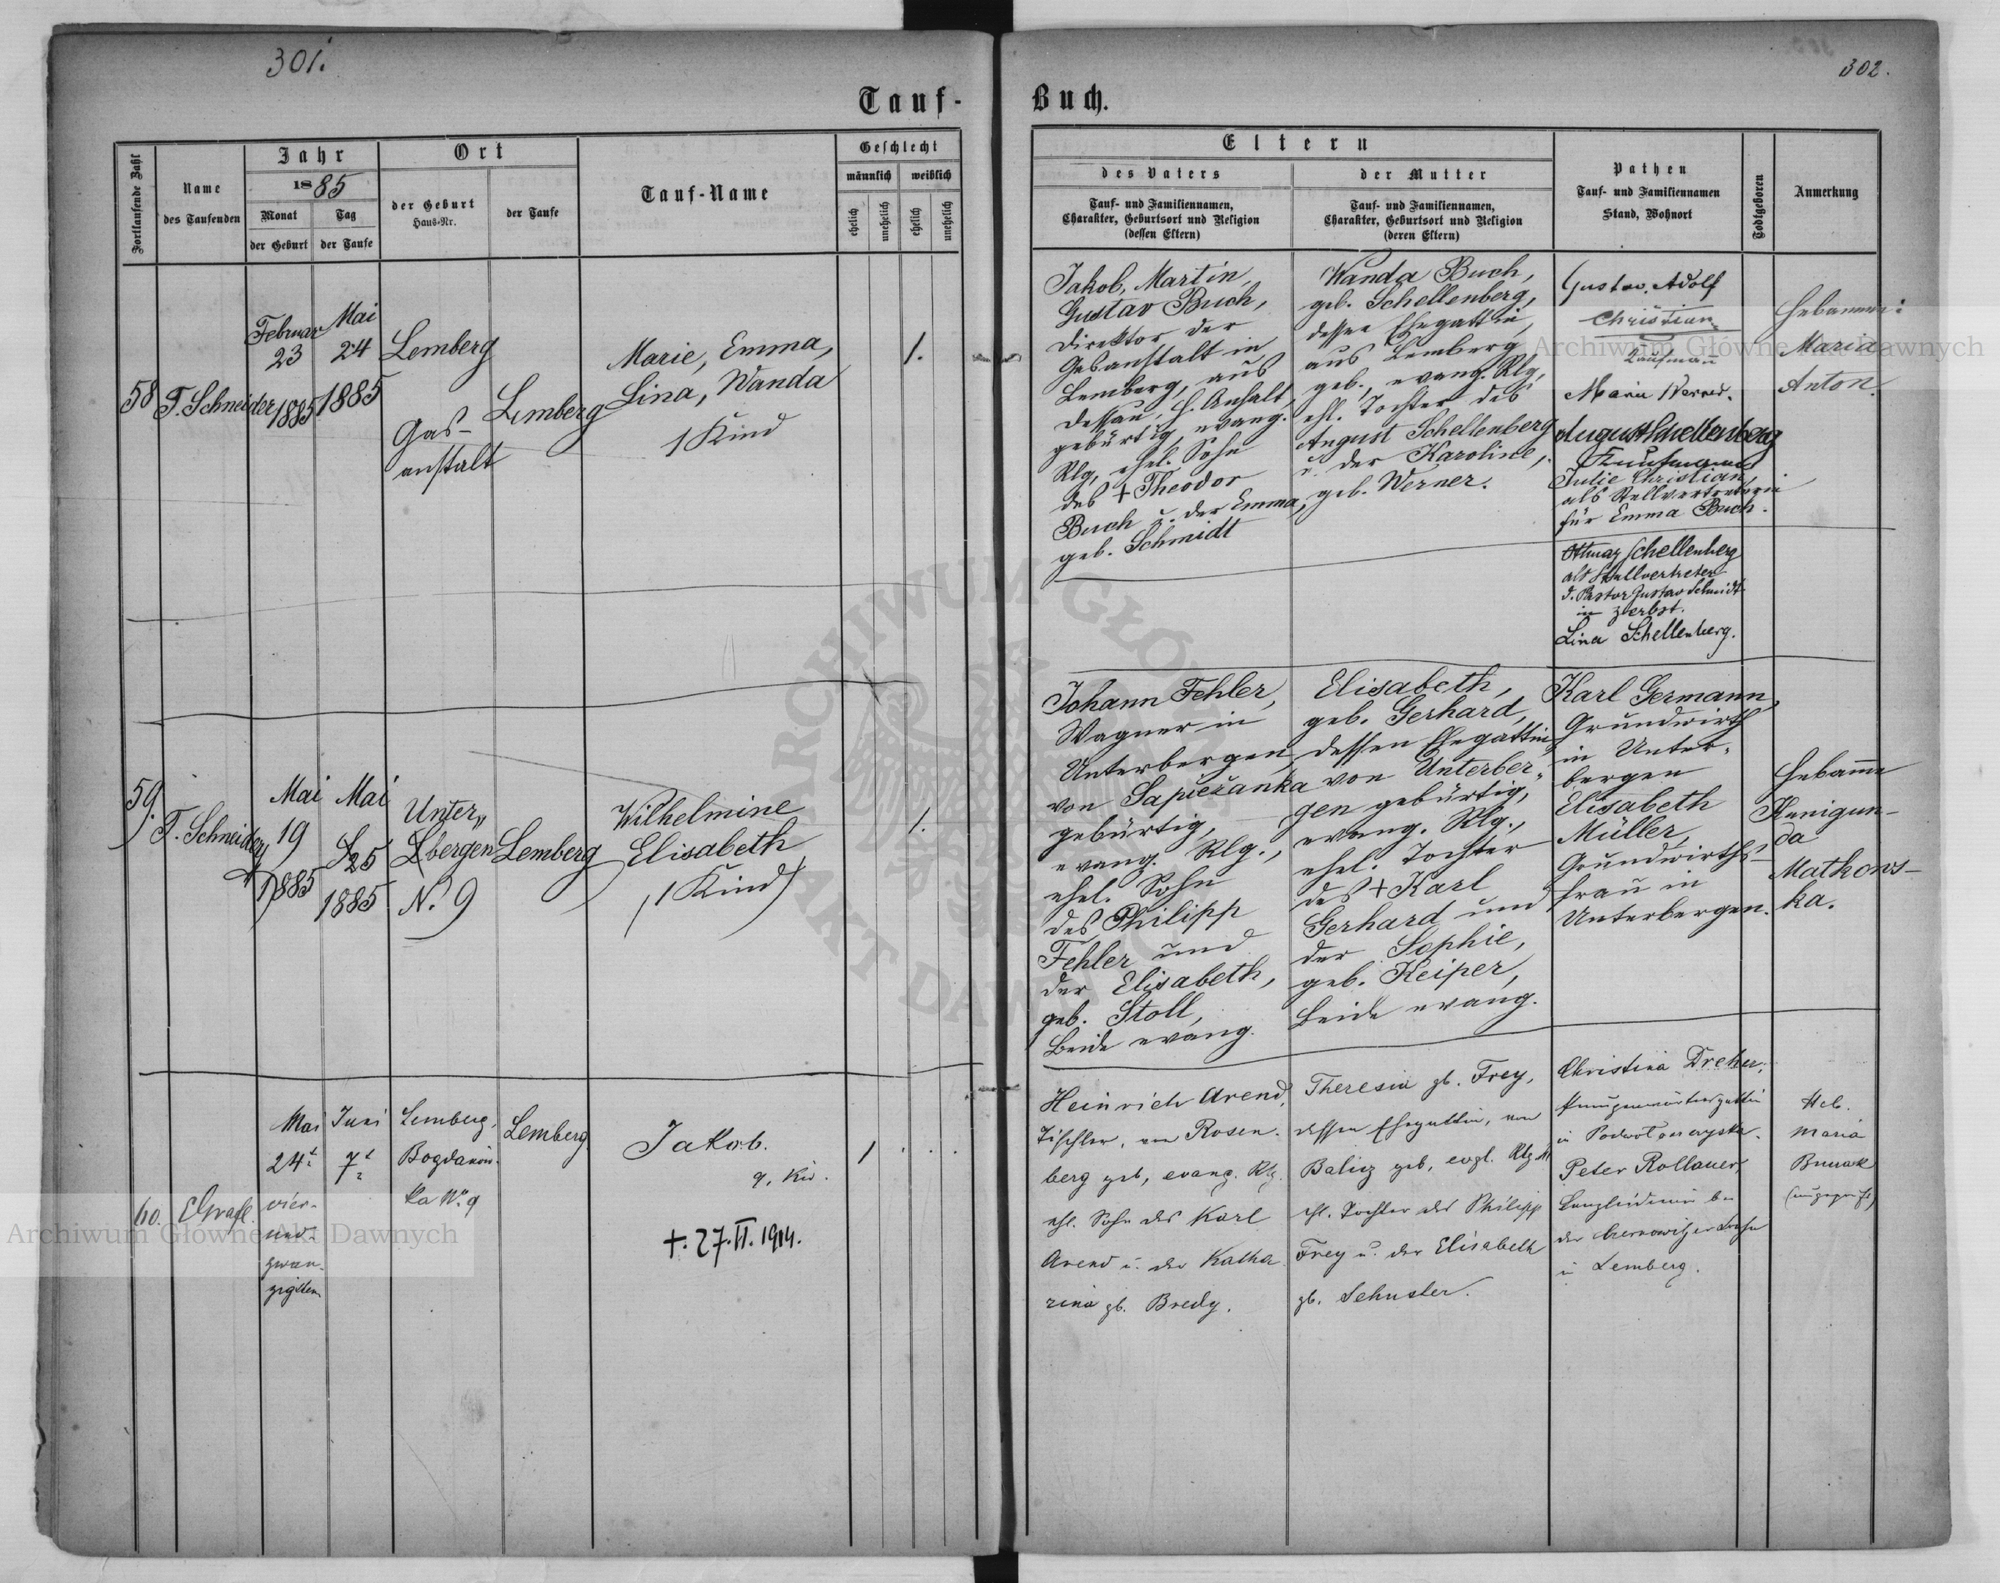 301.
302.
Tauf-
Buch.
Fortlaufende Zahl
Name
des Taufenden
Jahr
1885
Monat
der Geburt
Tag
der Taufe
Ort
der Geburt
Haus-Nr.
der Taufe
Tauf-Name
Geschlecht
männlich
weiblich
ehelich
unehelich
ehelich
unehelich
Eltern
des Vaters
Tauf- und Familiennamen,
Charakter, Geburtsort und Religion
(dessen Eltern)
der Mutter
Tauf- und Familiennamen,
Charakter, Geburtsort und Religion
(deren Eltern)
Pathen
Tauf- und Familiennamen
Stand, Wohnort
Todtgeboren
Anmerkung
58
T. Schneider
Februar
23
1885
Mai
24
1885
Lemberg
Gas-
anstalt
Lemberg
Marie, Emma,
Lina, Wanda
1 Kind
1.
Jakob, Martin,
Gustav Buch,
Direktor der
Gasanstalt in
Lemberg, aus
Dessau, H. Anhalt,
gebürtig, evang.
Rlg, ehel. Sohn
des + Theodor
Buch u. der Emma,
geb. Schmidt
Wanda Buch,
geb. Schellenberg,
dessen Ehegattin,
aus Lemberg
geb., evang. Rlg,
ehl. Tochter des
August Schellenberg
u. der Karoline,
geb. Werner.
Gustav Adolf
Christian
Kaufmann
Maria Werner.
August Schellenberg
Kaufmann
Julie Christian,
als Stellvertreterin
für Emma Buch.
Ottmar Schellenberg
als Stellvertreter
d. Pastor Gustav Schmidt
in Zerbst.
Lina Schellenberg.
Hebamme:
Maria
Anton.
59.
T. Schneider
Mai
19
1885
Mai
25
1885
Unter„
bergen
N. 9
Lemberg
Wilhelmine
Elisabeth
(1 Kind)
1.
Johann Fehler,
Wagner in
Unterbergen,
von Sapieżanka
gebürtig,
evang. Rlg.,
ehel. Sohn
des Philipp
Fehler und
der Elisabeth,
geb. Stoll,
Beide evang.
Elisabeth,
geb. Gerhard,
dessen Ehegattin
von Unterber„
gen gebürtig,
evang. Rlg.,
ehel. Tochter
des + Karl
Gerhard und
der Sophie,
geb. Keiper,
Beide evang.
Karl Germann,
Grundwirth
in Unter„
bergen
Elisabeth
Müller,
Grundwirths-
frau in
Unterbergen.
Hebamme
Kunigun-
da
Matkows-
ka.
60.
EGrafl.
Mai
24t
vier-
und-
zwan-
zigsten
Juni
7t
Lemberg,
Bogdanow-
ka No. 9
Lemberg
Jakob.
9. Kid.
+. 27. II. 1914.
1
Heinrich Arend,
Tischler, von Rosen-
berg geb, evang. Rlg.
ehl. Sohn des Karl
Arend u. der Katha
rina gb. Bredy.
Theresia gb. Frey,
dessen Ehegattin, von
Balicz geb, evgl. Rlg
ehl. Tochter des Philipp
Frey u. der Elisabeth
gb. Schuster.
Christina Dreher,
in
Peter Rollauer,
der Czernowitzer Bahn
in Lemberg.
Heb.
Maria
(ungeprüft)
Archiwum Główne Akt Dawnych
Archiwum Główne Akt Dawnych
ARCHIWUM GŁÓWNE AKT DAWNYCH